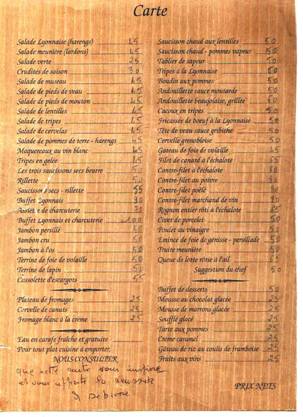 Carte
Salade Lyonnaise (harengs) 45
Salade meunière (lardons) 45
Salade verte 25
Crudites de saison 30
Salade de museau 45
Salade de pieds de veau 45
Salade de pieds de mouton 45
Salade de lentilles 45
Salade de tripes 45
Salade de cervelas 45
Salade de pomme de terre - harengs 45
Maquereaux au vin blanc 45
Tripes en gelee 45
Les trois saucissons secs beurre 50
Rillette 50
Saucisson secs - rillette 55
Buffet Lyonnais
Assiette de charcuterie
Buffet Lyonnais et charcuterie
Jambon persillé 50
Jambon cru 50
Jambon à l'os 50
Terrine de foie de volaille 50
Terrine de lapin 50
Cassolette d'escargots 55
Plateau de fromages 25
Cervelle de canuts 25
Fromage blanc à la crème 25
Eau en carafe fraîche et gratuite
Pour tout plat cuisine à emporter,
NOUS CONSULTER
Saucisson chaud aux lentilles 50
Saucisson chaud - pommes vapeur 50
Tablier de sapeur 50
Tripes à la Lyonnaise 50
Boudin aux pommes 50
Andouillette sauce moutarde 50
Andouillette beaujolaise, grillée
Cacous en tripes 50
Fricassée de boeuf à la Lyonnaise 50
Tête de veau sauce gribiche 50
Cervelle grenobloise 50
Gateau de foie de volaille
Filet de canard à l'échalote
Contre-filet à l'échalote
Contre-filet au poivre
Contre-filet poêlé
Contre-filet marchand de vin
Rognon entier rôti à l'échalote
Civet de porcelet 50
Poulet au vinaigre 50
Emince de foie de genisse - persillade 50
Truite meunière 50
Queue de lotte rotie à l'ail 65
Suggestion du chef 50
Buffet de desserts 50
Mousse au chocolat glacée 25
Mousse de marrons glacée 25
Soufflé glacé 25
Tarte aux pommes 25
Crème caramel 25
Gâteau de riz au coulis de framboise 25
Fruits aux vins 25
PRIX NETS